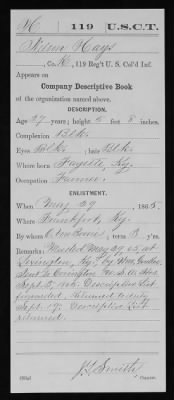 H | 119 | U.S.C.T.
Hays
, Co. K, 119 Reg't U. S. Col'd Inf.
Appears on
Company Descriptive Book
of the organization named above.
DESCRIPTION.
Age 27 years; height 5 feet 8 inches.
Complexion Blk
Eyes Blk; hair Blk
Where born Fayette, Ky.
Occupation Farmer
ENLISTMENT.
When May 29, 1865.
Where Frankfort, Ky.
By whom ; term 3 y'rs.
Remarks: Mustered May 29, 65, at
Lexington, Ky., by
Sent to Covington U.S.A. Hos.
Sept. 5, 1865. Descriptive List
forwarded. Returned to duty
Sept. 17. Descriptive List
returned.
J. L. Smith
Copyist.